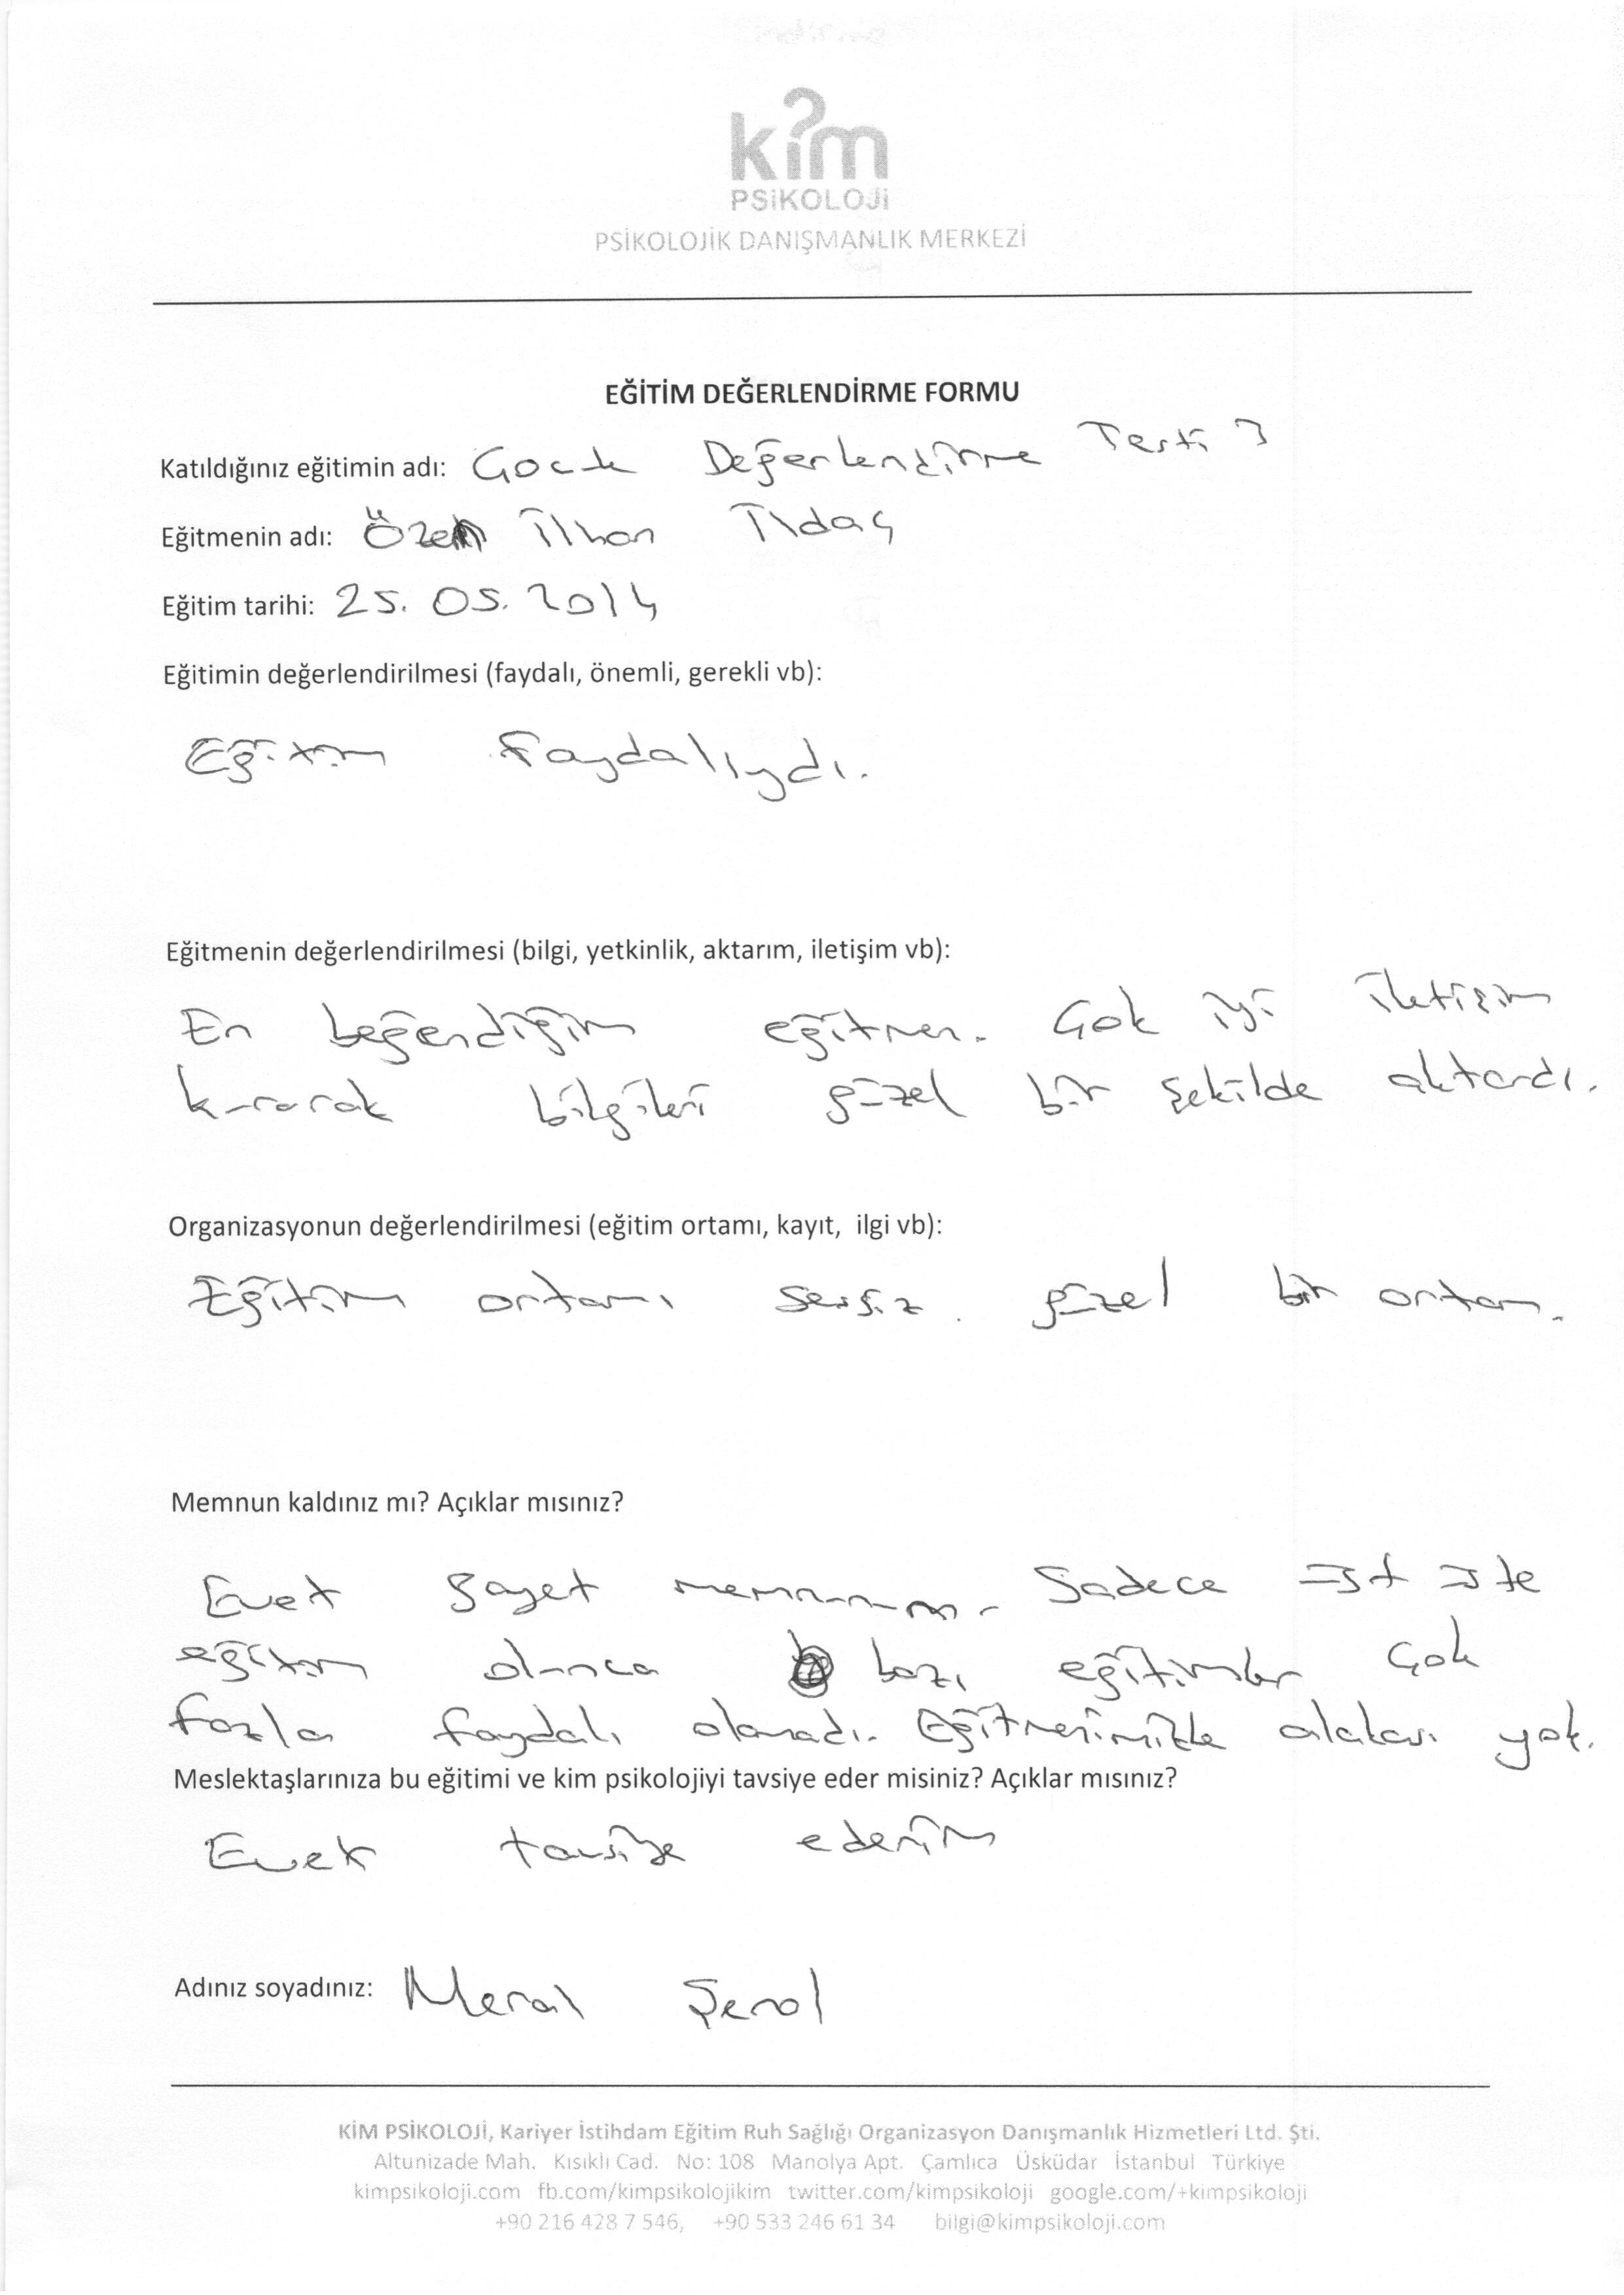 kim
PSiKOLOJi
PSİKOLOJİK DANIŞMANLIK MERKEZİ
EĞİTİM DEĞERLENDİRME FORMU
Katıldığınız eğitimin adı: Çocuk Değerlendirme Testi 3
Eğitmenin adı: Özem İlhan
Eğitim tarihi: 25.05.2014
Eğitimin değerlendirilmesi (faydalı, önemli, gerekli vb):
Eğitim faydalıydı.
Eğitmenin değerlendirilmesi (bilgi, yetkinlik, aktarım, iletişim vb):
En beğendiğim eğitmen. Çok iyi iletişim
kurarak bilgileri güzel bir şekilde aktardı.
Organizasyonun değerlendirilmesi (eğitim ortamı, kayıt, ilgi vb):
Eğitim ortamı sessiz. güzel bir ortam.
Memnun kaldınız mı? Açıklar mısınız?
Evet gayet memnunum. Sadece üst üste
eğitim olunca bazı eğitimler çok
fazla faydalı olamadı. Eğitmenimizle alakası yok.
Meslektaşlarınıza bu eğitimi ve kim psikolojiyi tavsiye eder misiniz? Açıklar mısınız?
Evet tavsiye ederim
Adınız soyadınız: Meral Şenol
KİM PSİKOLOJİ, Kariyer İstihdam Eğitim Ruh Sağlığı Organizasyon Danışmanlık Hizmetleri Ltd. Şti.
Altunizade Mah. Kısıklı Cad. No: 108 Manolya Apt. Çamlıca Üsküdar İstanbul Türkiye
kimpsikoloji.com fb.com/kimpsikolojikim twitter.com/kimpsikoloji google.com/+kimpsikoloji
+90 216 428 7 546, +90 533 246 61 34 bilgi@kimpsikoloji.com